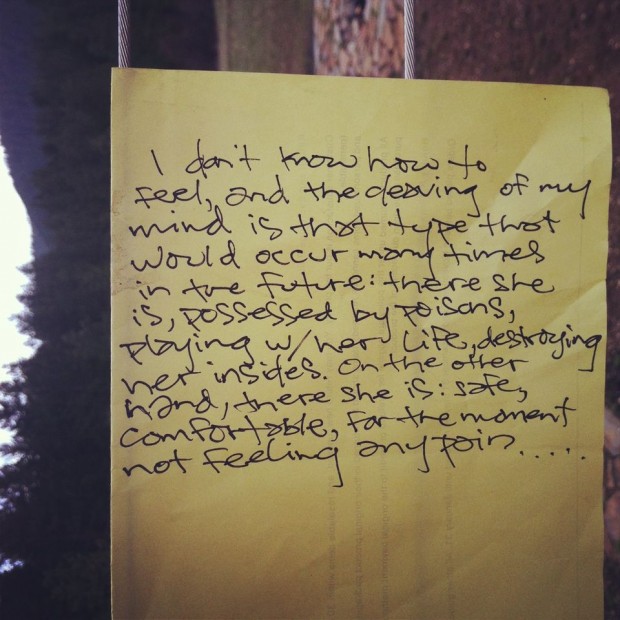 I don't know how to
feel, and the cleaving of my
mind is that type that
would occur many times
in the future: there she
is, possessed by poisons,
playing w/ her life, destroying
her insides. On the other
hand, there she is: safe,
comfortable, for the moment
not feeling any pain.....